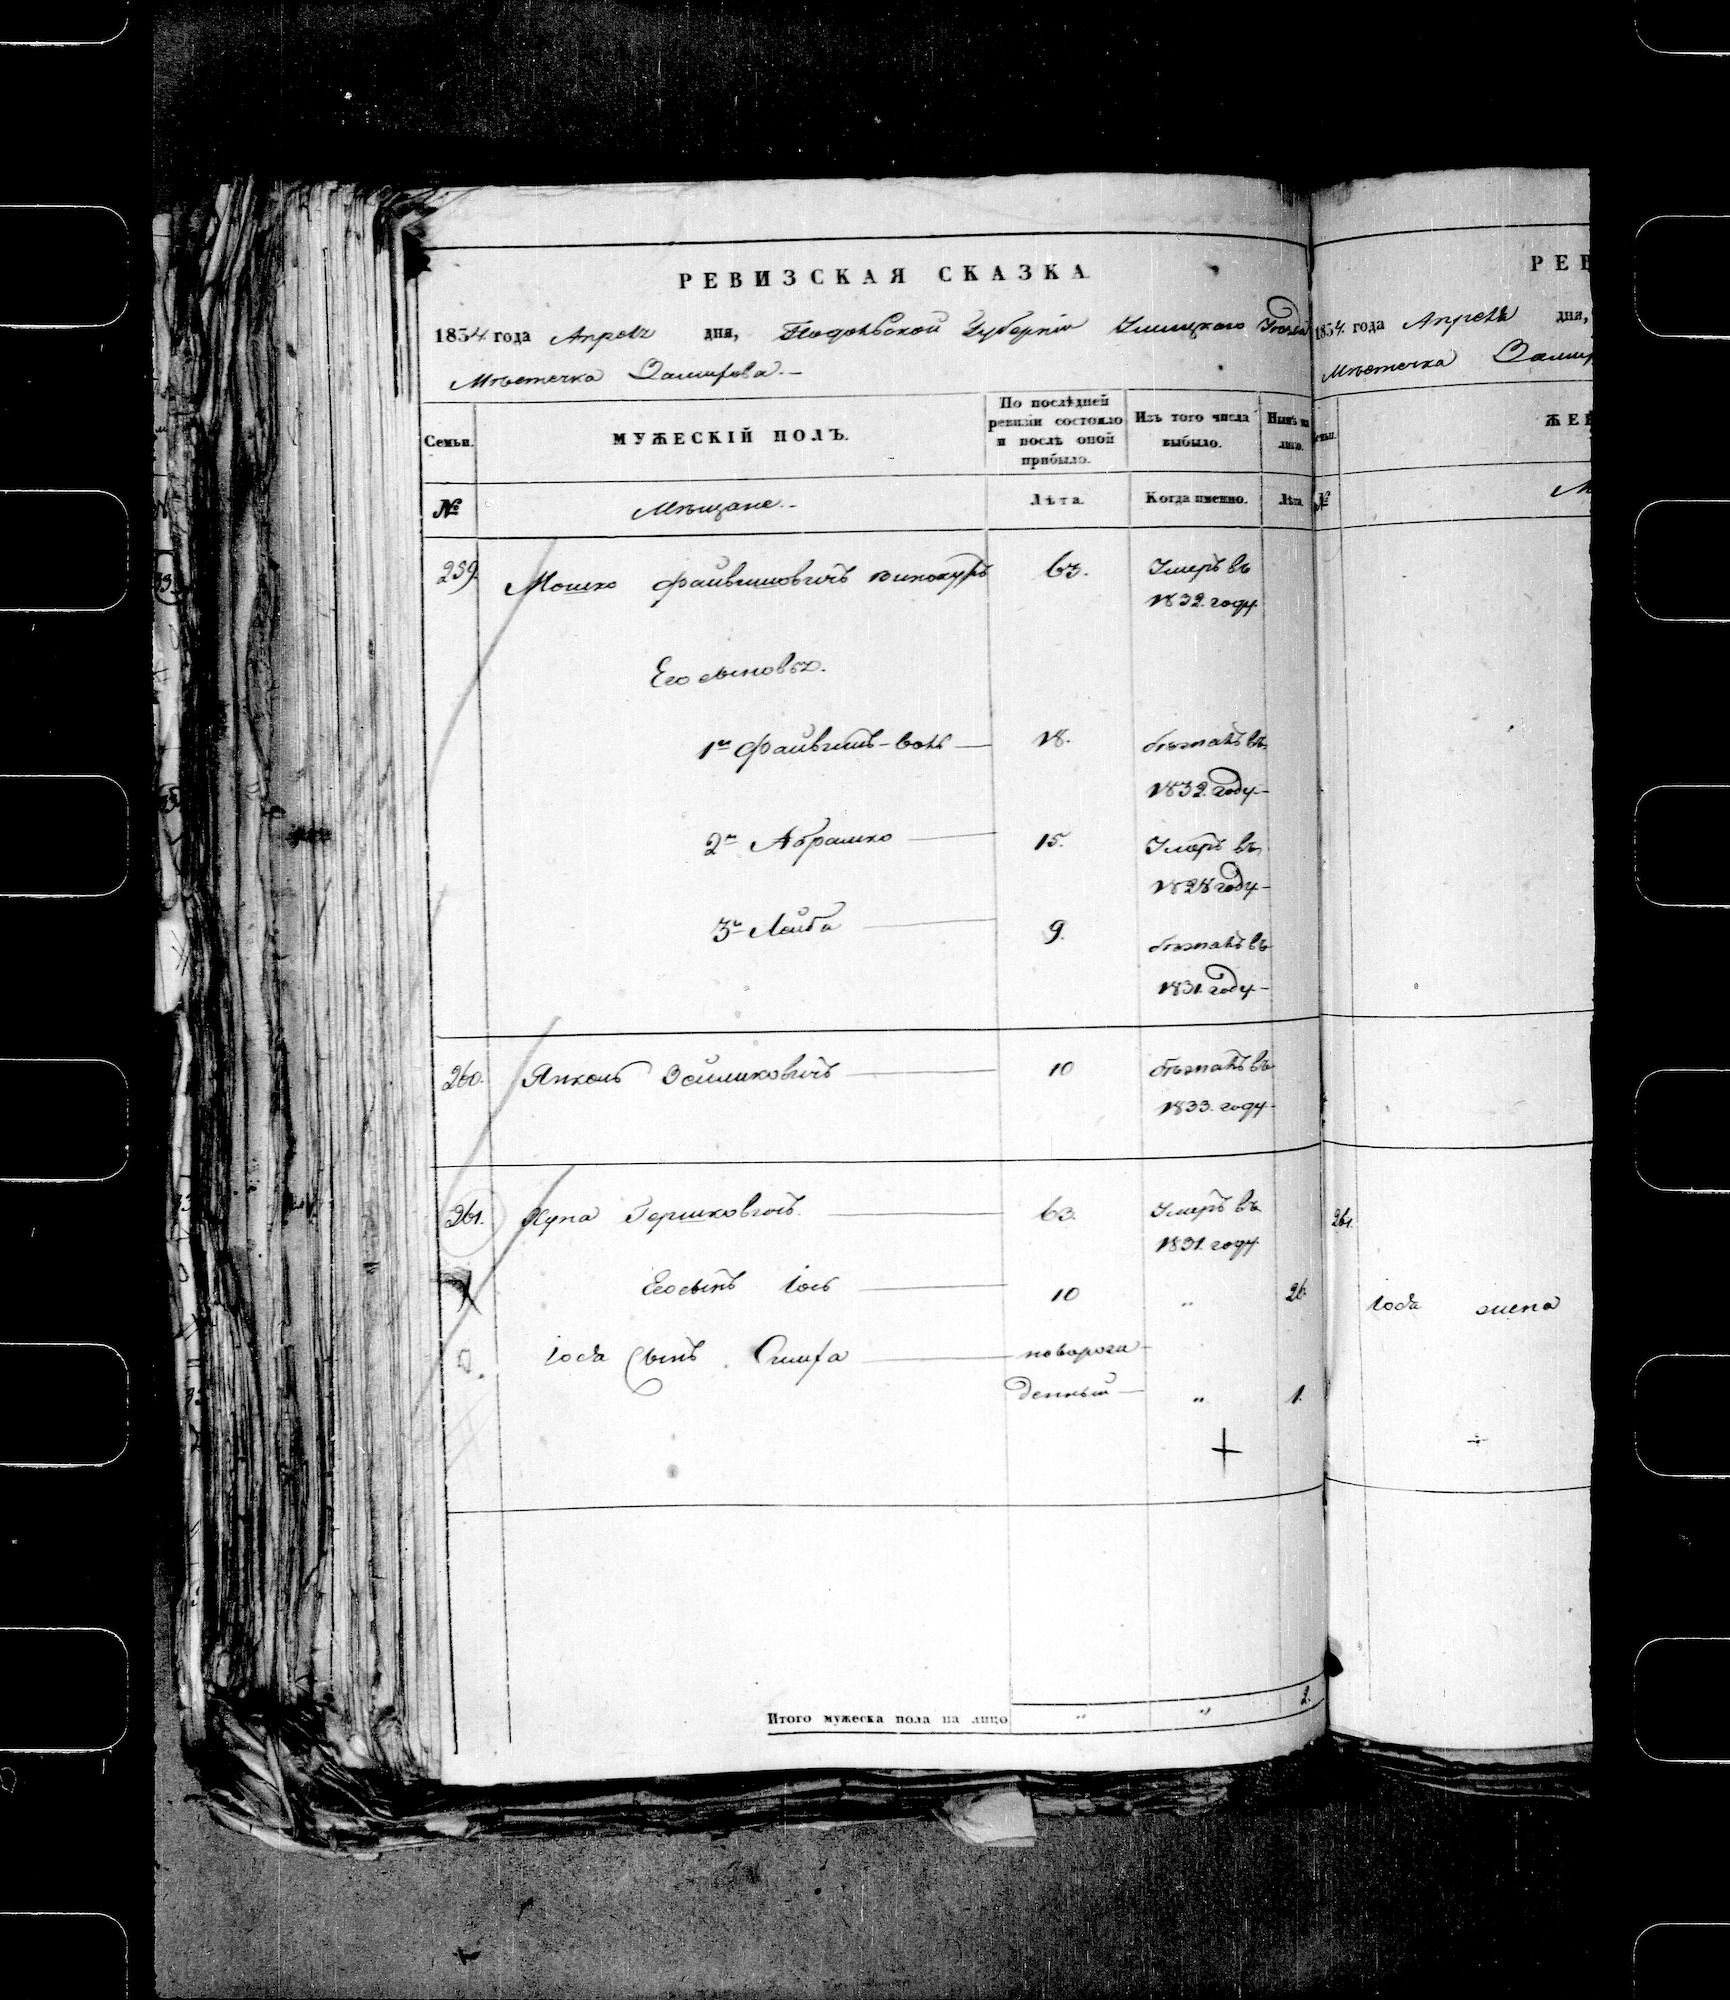 РЕВИЗСКАЯ СКАЗКА
1834 года Апреля дня, Подольской Губерніи Ушицкаго Уезда
Мѣстечка
Семьи.
МУЖЕСКІЙ ПОЛЪ.
По послѣдней
ревизіи состояло
и послѣ оной
прибыло.
Изъ того числа
выбыло.
Нынѣ на
лицо.
№
Мѣщане.
Лѣта.
Когда именно.
Лѣта.
259. Мошко Файвишовичъ Винокуръ 63. Умеръ въ
1832. году.
Его сыновья.
1й Файвишъ-Вольъ 18. бѣжалъ въ
1832. году
2й Абрамко 15. Умеръ въ
1828 году
3й Лейба 9. бѣжалъ въ
1831. году
260. Янкель Зейликовичъ 10 бѣжалъ въ
1833. году
261. Хуна Гершковичъ. 63. Умеръ въ
1831. году.
Его сынъ Іось 10 „ 26
Іося Сынъ новорож
денный „ 1.
Итого мужеска пола на лицо „ „ 2.
РЕВ
1834. года Апреля дня,
Мѣстечка
ЖЕН
№
261.
Іося жена